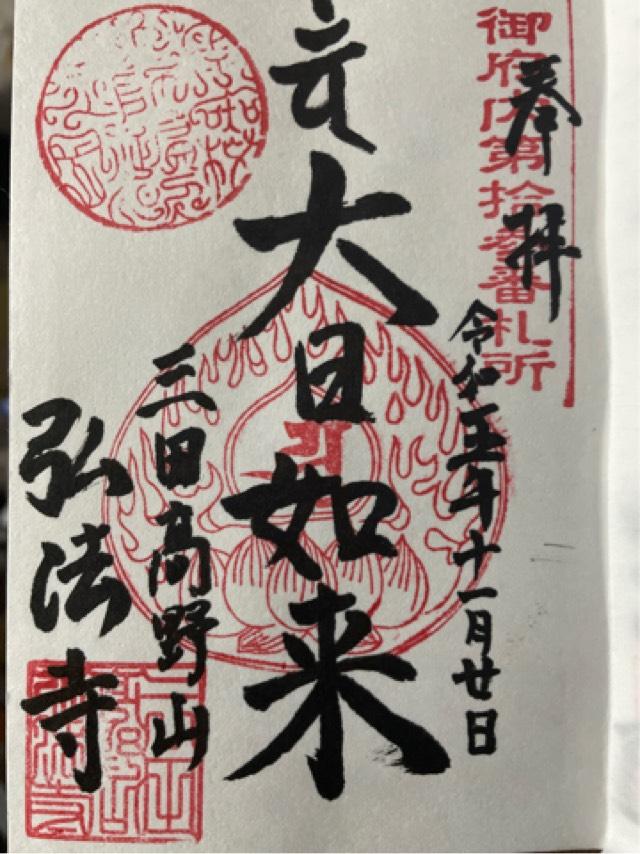 御府内第拾参番札所
奉拝
令和五年十一月廿日
大日如来
三田高野山
弘法寺